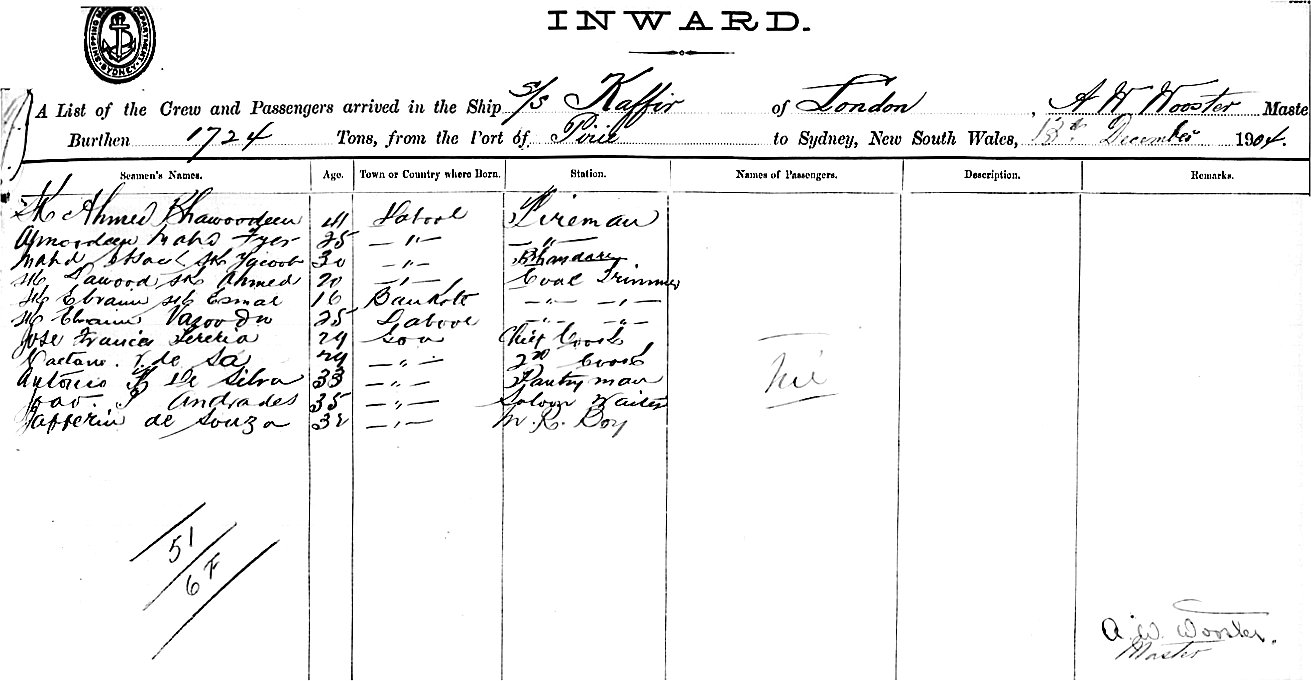 SHIPPING MASTER'S DEPARTMENT SYDNEY
INWARD.
A List of the Crew and Passengers arrived in the Ship S/S Kaffir of London, A W Wooster Maste
Burthen 1724 Tons, from the Port of Pirie to Sydney, New South Wales, 13th December 1904.
Seamen's Names. Age. Town or Country where Born. Station. Names of Passengers. Description. Remarks.
Sk Ahmed Khawoodeen 41 Dabool Fireman
Mahd 25 — " — — " —
Mahd Sk Yacoob 30 — " — Bhandary
Sk Dawood Sk Ahmed 20 — " — Coal Trimmer
Sk Ebraim Sk Esmal 16 — " — — " —
Sk Ebraim 25 Dabool — " — — " —
Jose Francis Pereria 29 Goa Chief Cook
Caetano de Sa 29 — " — 2nd Cook
Antonio De Silva 33 — " — Pantry man
Joao. P Andrades 35 — " — Saloon Waiter
de Souza — " — M. R. Boy
Nil
51
6 F
A. W. Wooster.
Master